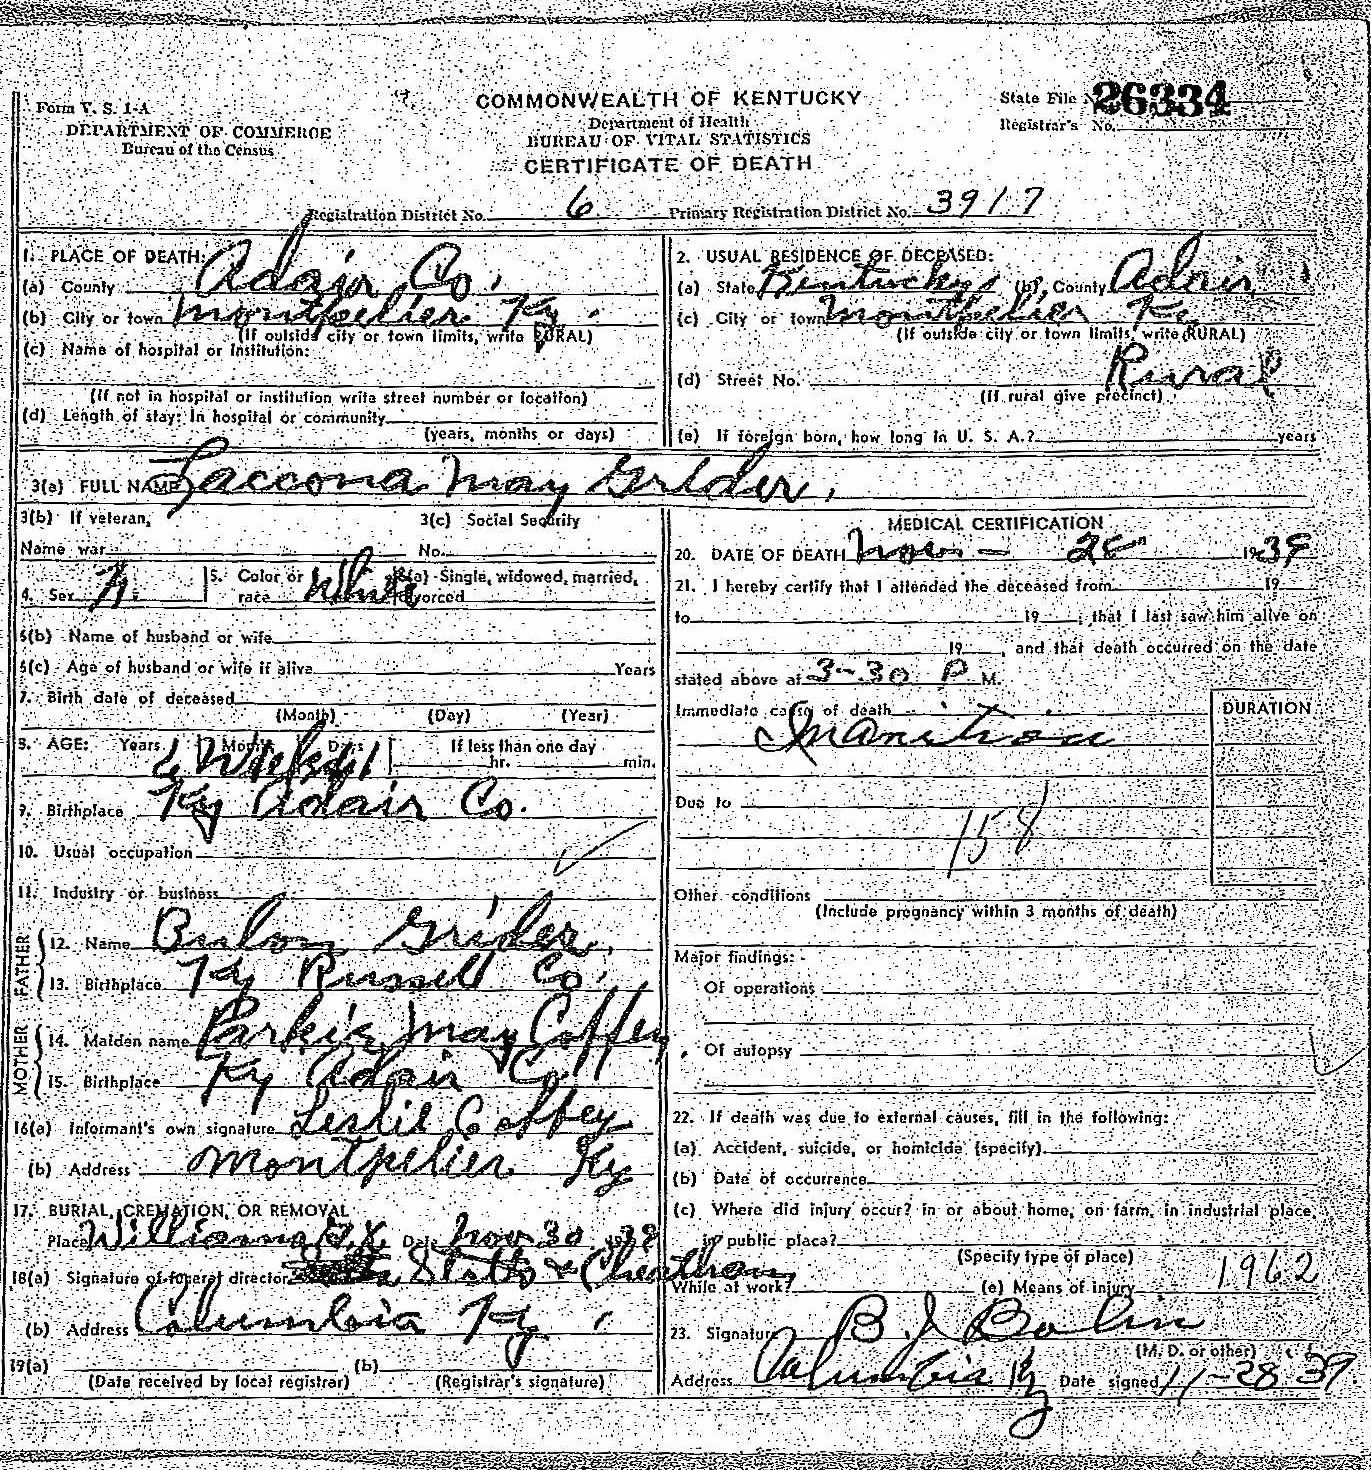 Form V. S. 1-A
DEPARTMENT OF COMMERCE
Bureau of the Census
COMMONWEALTH OF KENTUCKY
Department of Health
BUREAU OF VITAL STATISTICS
CERTIFICATE OF DEATH
State File No. 26334
Registrar's No.
Registration District No. 6 Primary Registration District No. 3917
1. PLACE OF DEATH:
(a) County Adair Co.
(b) City or town Montpelier Ky.
(If outside city or town limits, write RURAL)
(c) Name of hospital or institution:
(If not in hospital or institution write street number or location)
(d) Length of stay: In hospital or community
(years, months or days)
2. USUAL RESIDENCE OF DECEASED:
(a) State Kentucky (b) County Adair
(c) City or town Montpelier Ky
(If outside city or town limits, write RURAL)
(d) Street No. Rural
(If rural give precinct)
(e) If foreign born, how long in U. S. A.? years
3(a) FULL NAME Laccona May Grider,
3(b) If veteran, 3(c) Social Security
Name war No.
4. Sex F. 5. Color or race White 6(a) Single, widowed, married, divorced
6(b) Name of husband or wife
6(c) Age of husband or wife if alive Years
7. Birth date of deceased
(Month) (Day) (Year)
8. AGE: Years Months Days If less than one day
hr. min.
9. Birthplace Ky Adair Co.
10. Usual occupation
11. Industry or business
FATHER
12. Name Grider.
13. Birthplace Ky Russell Co.
MOTHER
14. Maiden name Parkie May Coffey
15. Birthplace Ky Adair Co.
16(a) Informant's own signature Leslie Coffey
(b) Address Montpelier Ky
17. BURIAL, CREMATION, OR REMOVAL
Place Williams Date Nov 30 1939
18(a) Signature of funeral director Stotts & Cheatham
(b) Address Columbia Ky.
19(a) (b)
(Date received by local registrar) (Registrar's signature)
MEDICAL CERTIFICATION
20. DATE OF DEATH Nov - 28 1939
21. I hereby certify that I attended the deceased from 19
to 19 ; that I last saw him alive on
19 , and that death occurred on the date
stated above at 3-30 P M.
Immediate cause of death DURATION
Inanition
Due to
158
Other conditions
(Include pregnancy within 3 months of death)
Major findings:
Of operations
Of autopsy
22. If death was due to external causes, fill in the following:
(a) Accident, suicide, or homicide (specify)
(b) Date of occurrence
(c) Where did injury occur? in or about home, on farm, in industrial place,
in public place?
(Specify type of place)
While at work? (e) Means of injury 1962
23. Signature B. J. Bolin
(M. D. or other)
Address Columbia Ky Date signed 11-28 39